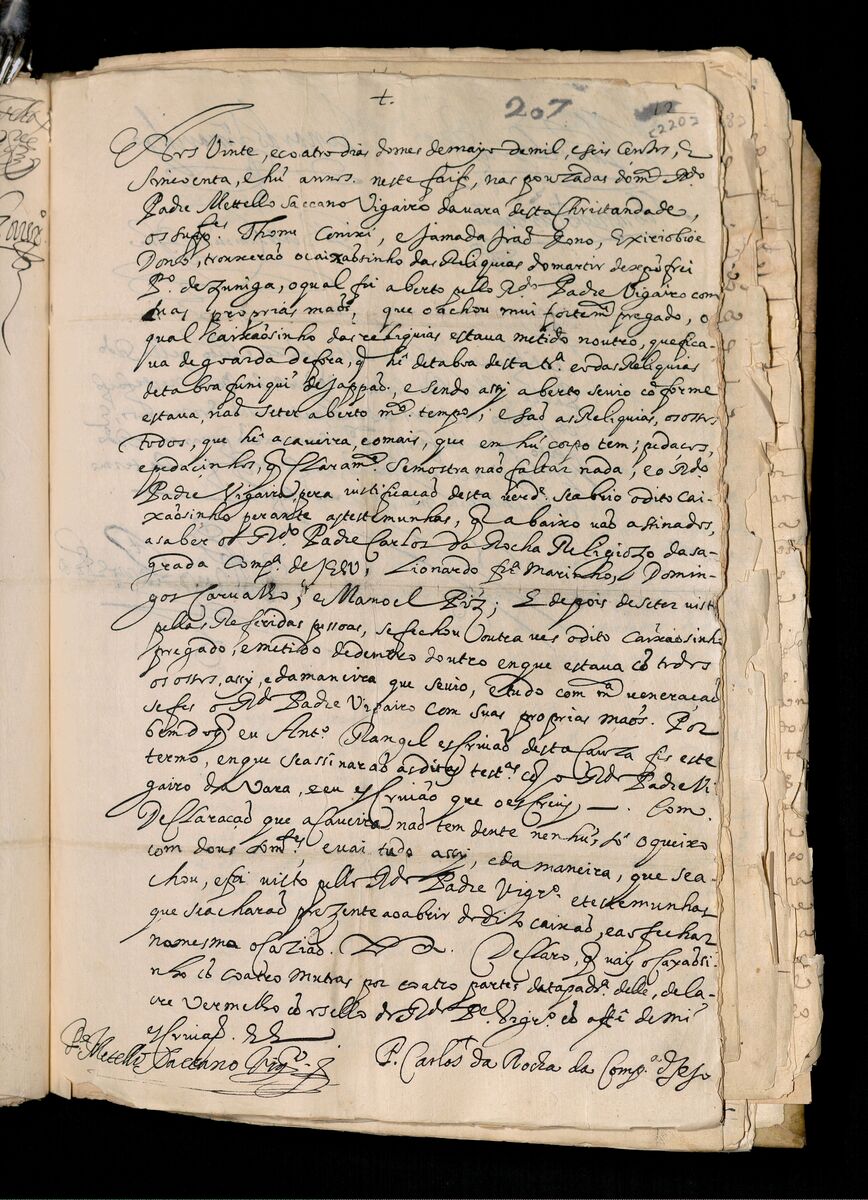 +
207
12
Aos Vinte, e coatro dias do mes de mayo de mil, e seis centos, E
sincoenta, e hũ annos. neste faifo, nas pouzadas do mᵗᵒ Rᵈᵒ
Padre Mettello Saccano Vigairo da vara desta Christandade,
os suppᵉˢ Thome
Dono, trouxerão o caixãosinho das Reliquias do martir de xpõ frei
Pᵒ. de Zuniga, o qual fui aberto pello Rᵈᵒ Padre Vigairo com
suas proprias maõs, que o achou mui fortemᵗᵉ pregado, o
qual caixãosinho das reliquias estava metido noutro, que fica-
va de goarda de fora, q̃ hé de taboa desta trᵃ e o das Reliquias
de taboa funiqui de jappaõ, e sendo assy aberto se vio cõforme
estava, naõ se ter aberto mᵗᵒ tempo; e saõ as Reliquias, os ossos
todos, que hé a caveira, e o mais, que em hũ corpo tem; pedaços,
e pedacinhos, q̃ claramᵗᵉ se mostra naõ faltar nada; e o Rᵈᵒ
Padre Vigairo, pera iustificaçaõ desta verdᵉ. se abrio o dito cai-
xãosinho perante as testemunhas, q̃ abaixo vaõ asinados,
a saber o Rᵈᵒ Padre Carlos da Rocha Religiozo da sa-
grada Compᵃ. de IESV, Lionardo frᵃ Marinho, Domin-
gos Carvalho, e Manoel Piz; E depois de se ter visto
pellas Referidas pessoas, se fechou outra ves o dito caixãosinho
pregado, e metido de dentro doutro en que estava cõ todos
os ossos, assy, e da maneira que se vio, e tudo com mᵗᵃ veneraçaõ
se fes o Rᵈᵒ Padre Vigairo com suas proprias maõs. Por
bem do q̃ eu Antᵒ. Rangel escrivaõ desta Cauza fis este
termo, en que se assinaraõ as ditas testᵃˢ cõ o Rᵈᵒ Padre Vi
gairo da Vara, e eu escrivaõ que o escrevy —. Com
Declaraçaõ que a caveira naõ tem dente nenhũ, só o queixo
com dous somᵗᵉˢ. e vai tudo assy, e da maneira, que se a-
chou, e foi visto pello Rᵈᵒ Padre Vigrᵒ. e testemunhas
que se acharaõ prezente ao abrir do dito caixaõ, e ao fechar
na mesma ocaziaõ. Declaro, q̃ vaij o caxaõsi-
nho cõ coatro mutras por coatro partes da tapadrᵃ delle, de la-
cre vermelho cõ o sello do Rᵈᵒ Pᵉ. Vigrᵒ. cõ assi de mi
escrivaõ.
Pᵉ. Metello Saccano Vigrᵒ.
P. Carlos da Rocha da Compᵃ de Jesu